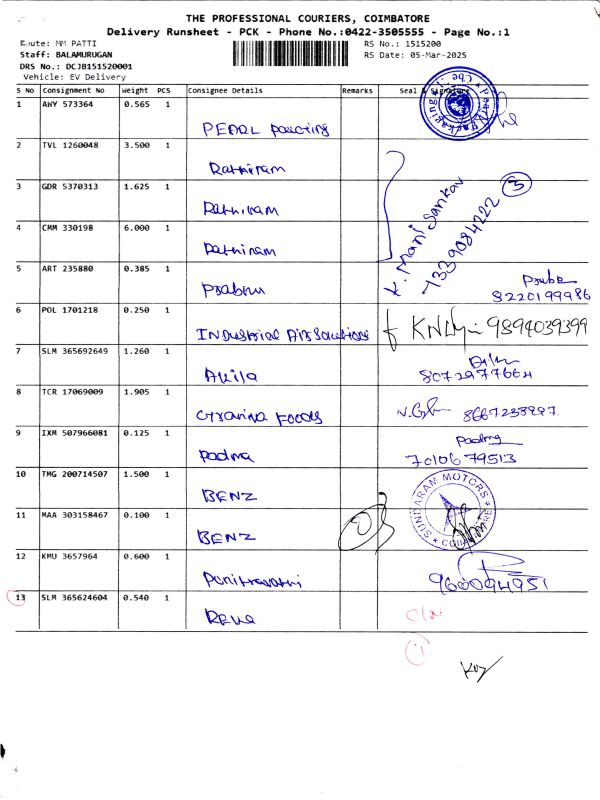 THE PROFESSIONAL COURIERS, COIMBATORE
Delivery Runsheet - PCK - Phone No.:0422-3505555 - Page No.:1
Route: MM PATTI
RS No.: 1515200
Staff: BALAMURUGAN
RS Date: 05-Mar-2025
DRS No.: DCJB151520001
Vehicle: EV Delivery
S No Consignment No Weight PCS Consignee Details Remarks Seal & Signature
1 AWY 573364 0.565 1
PEARL
2 TVL 1260048 3.500 1
Rathinam
3 GDR 5370313 1.625 1
Rathinam
K. Mani Sankar
3
4 CMM 330198 6.000 1
Rathinam
5 ART 235880 0.385 1
Prabhu
8220199986
6 POL 1701218 0.250 1
Industrial Air Solutions 9894039399
7 SLM 365692649 1.260 1
Akila
8072977664
8 TCR 17069009 1.905 1
Foods
9 IXM 507966081 0.125 1
Padma
7010679513
10 TMG 200714507 1.500 1
BENZ
SUNDARAM MOTORS
11 MAA 303158467 0.100 1
BENZ
12 KMU 3657964 0.600 1
9600094951
13 SLM 365624604 0.540 1